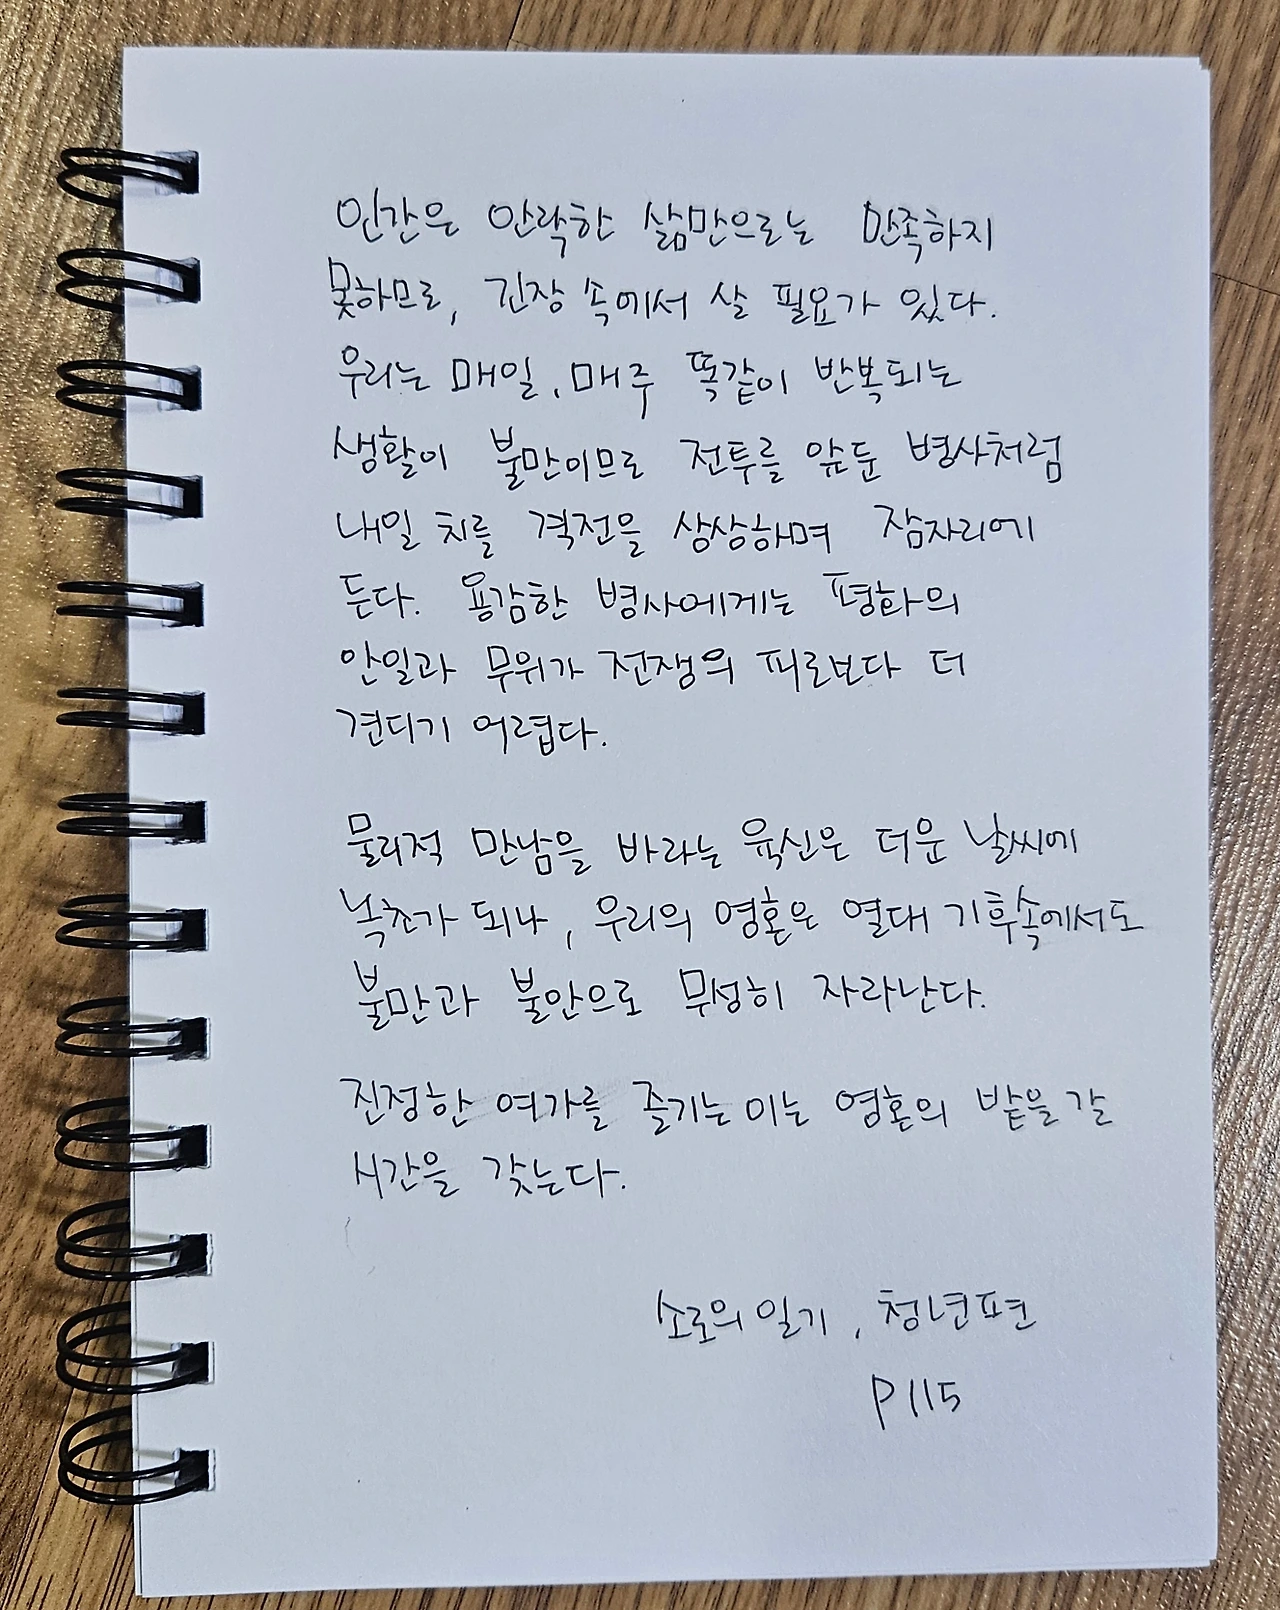 인간은 안락한 삶만으로는 만족하지
못하므로, 긴장 속에서 살 필요가 있다.
우리는 매일, 매주 똑같이 반복되는
생활이 불만이므로 전투를 앞둔 병사처럼
내일 치를 격전을 상상하며 잠자리에
든다. 용감한 병사에게는 평화의
안일과 무위가 전쟁의 피로보다 더
견디기 어렵다.
물리적 만남을 바라는 육신은 더운 날씨에
녹초가 되나, 우리의 영혼은 열대 기후속에서도
불만과 불안으로 무성히 자라난다.
진정한 여가를 즐기는 이는 영혼의 밭을 갈
시간을 갖는다.
소로의 일기, 청년편
P 115